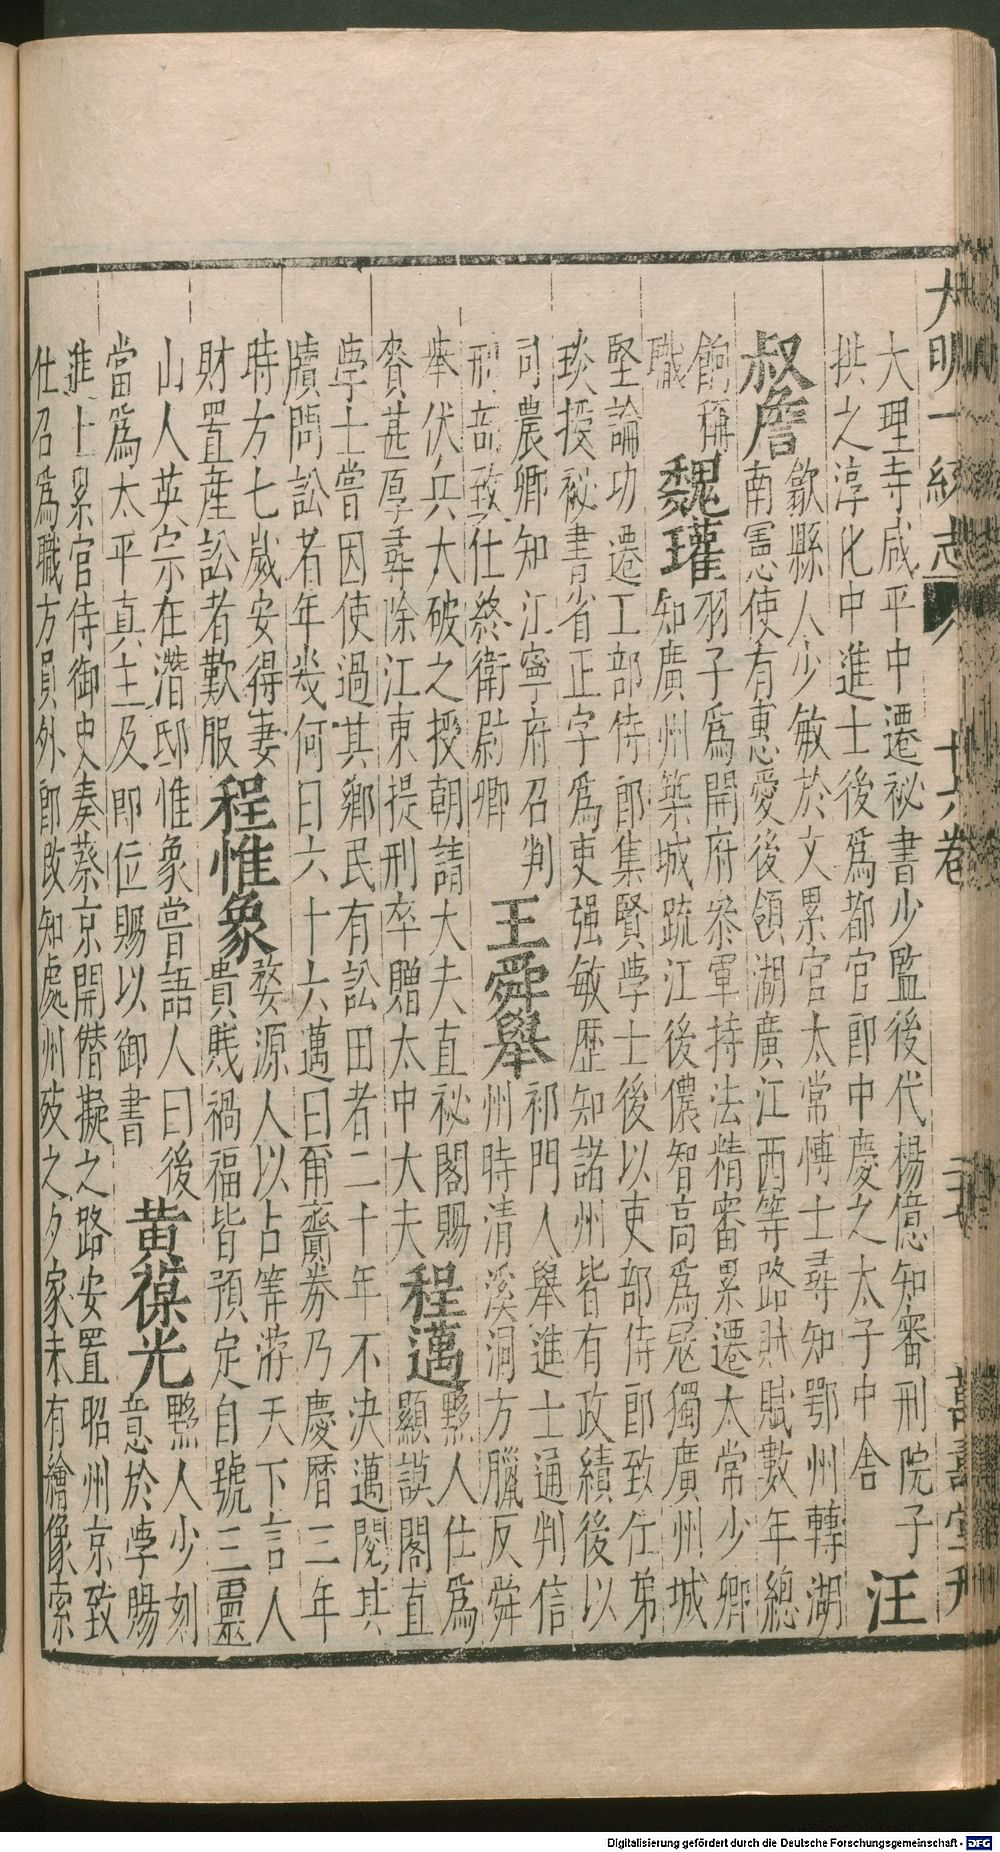 大明一統志 十六卷 萬壽堂刊
大理寺咸平中遷祕書少監後代楊億知審刑院子
拱之淳化中進士後爲都官郎中慶之太子中舍
汪
叔詹
歙縣人少敏於文累官太常愽士尋知鄂州轉湖
南憲使有惠愛後領湖廣江西等路財賦數年總
餉稱
職
魏瓘
羽子爲開府叅軍持法精審累遷太常少卿
知廣州築城疏江後儂智高爲寇獨廣州城
堅論功遷工部侍郎集賢學士後以吏部侍郎致仕弟
琰授祕書省正字爲吏强敏歷知諸州皆有政績後以
司農卿知江寧府召判
刑部致仕終衛尉卿
王舜舉
祁門人舉進士通判信
州時清溪洞方臘反舜
舉伏兵大破之授朝請大夫直祕閣賜
賚甚厚尋除江東提刑卒贈太中大夫
程邁
黟人仕爲
顯謨閣直
學士嘗因使過其鄉民有訟田者二十年不決邁閱其
牘問訟者年幾何曰六十六邁曰爾齎券乃慶曆三年
時方七歲安得妻
財置産訟者歎服
程惟象
婺源人以占筭游天下言人
貴賤禍福皆預定自號三靈
山人英宗在潛邸惟象嘗語人曰後
當爲太平真主及即位賜以御書
黃葆光
黟人少刻
意於學賜
進上累官侍御史奏蔡京開僭擬之路安置昭州京致
仕召爲職方員外郎改知處州歿之夕家未有繪像索
Digitalisierung gefördert durch die Deutsche Forschungsgemeinschaft - DFG